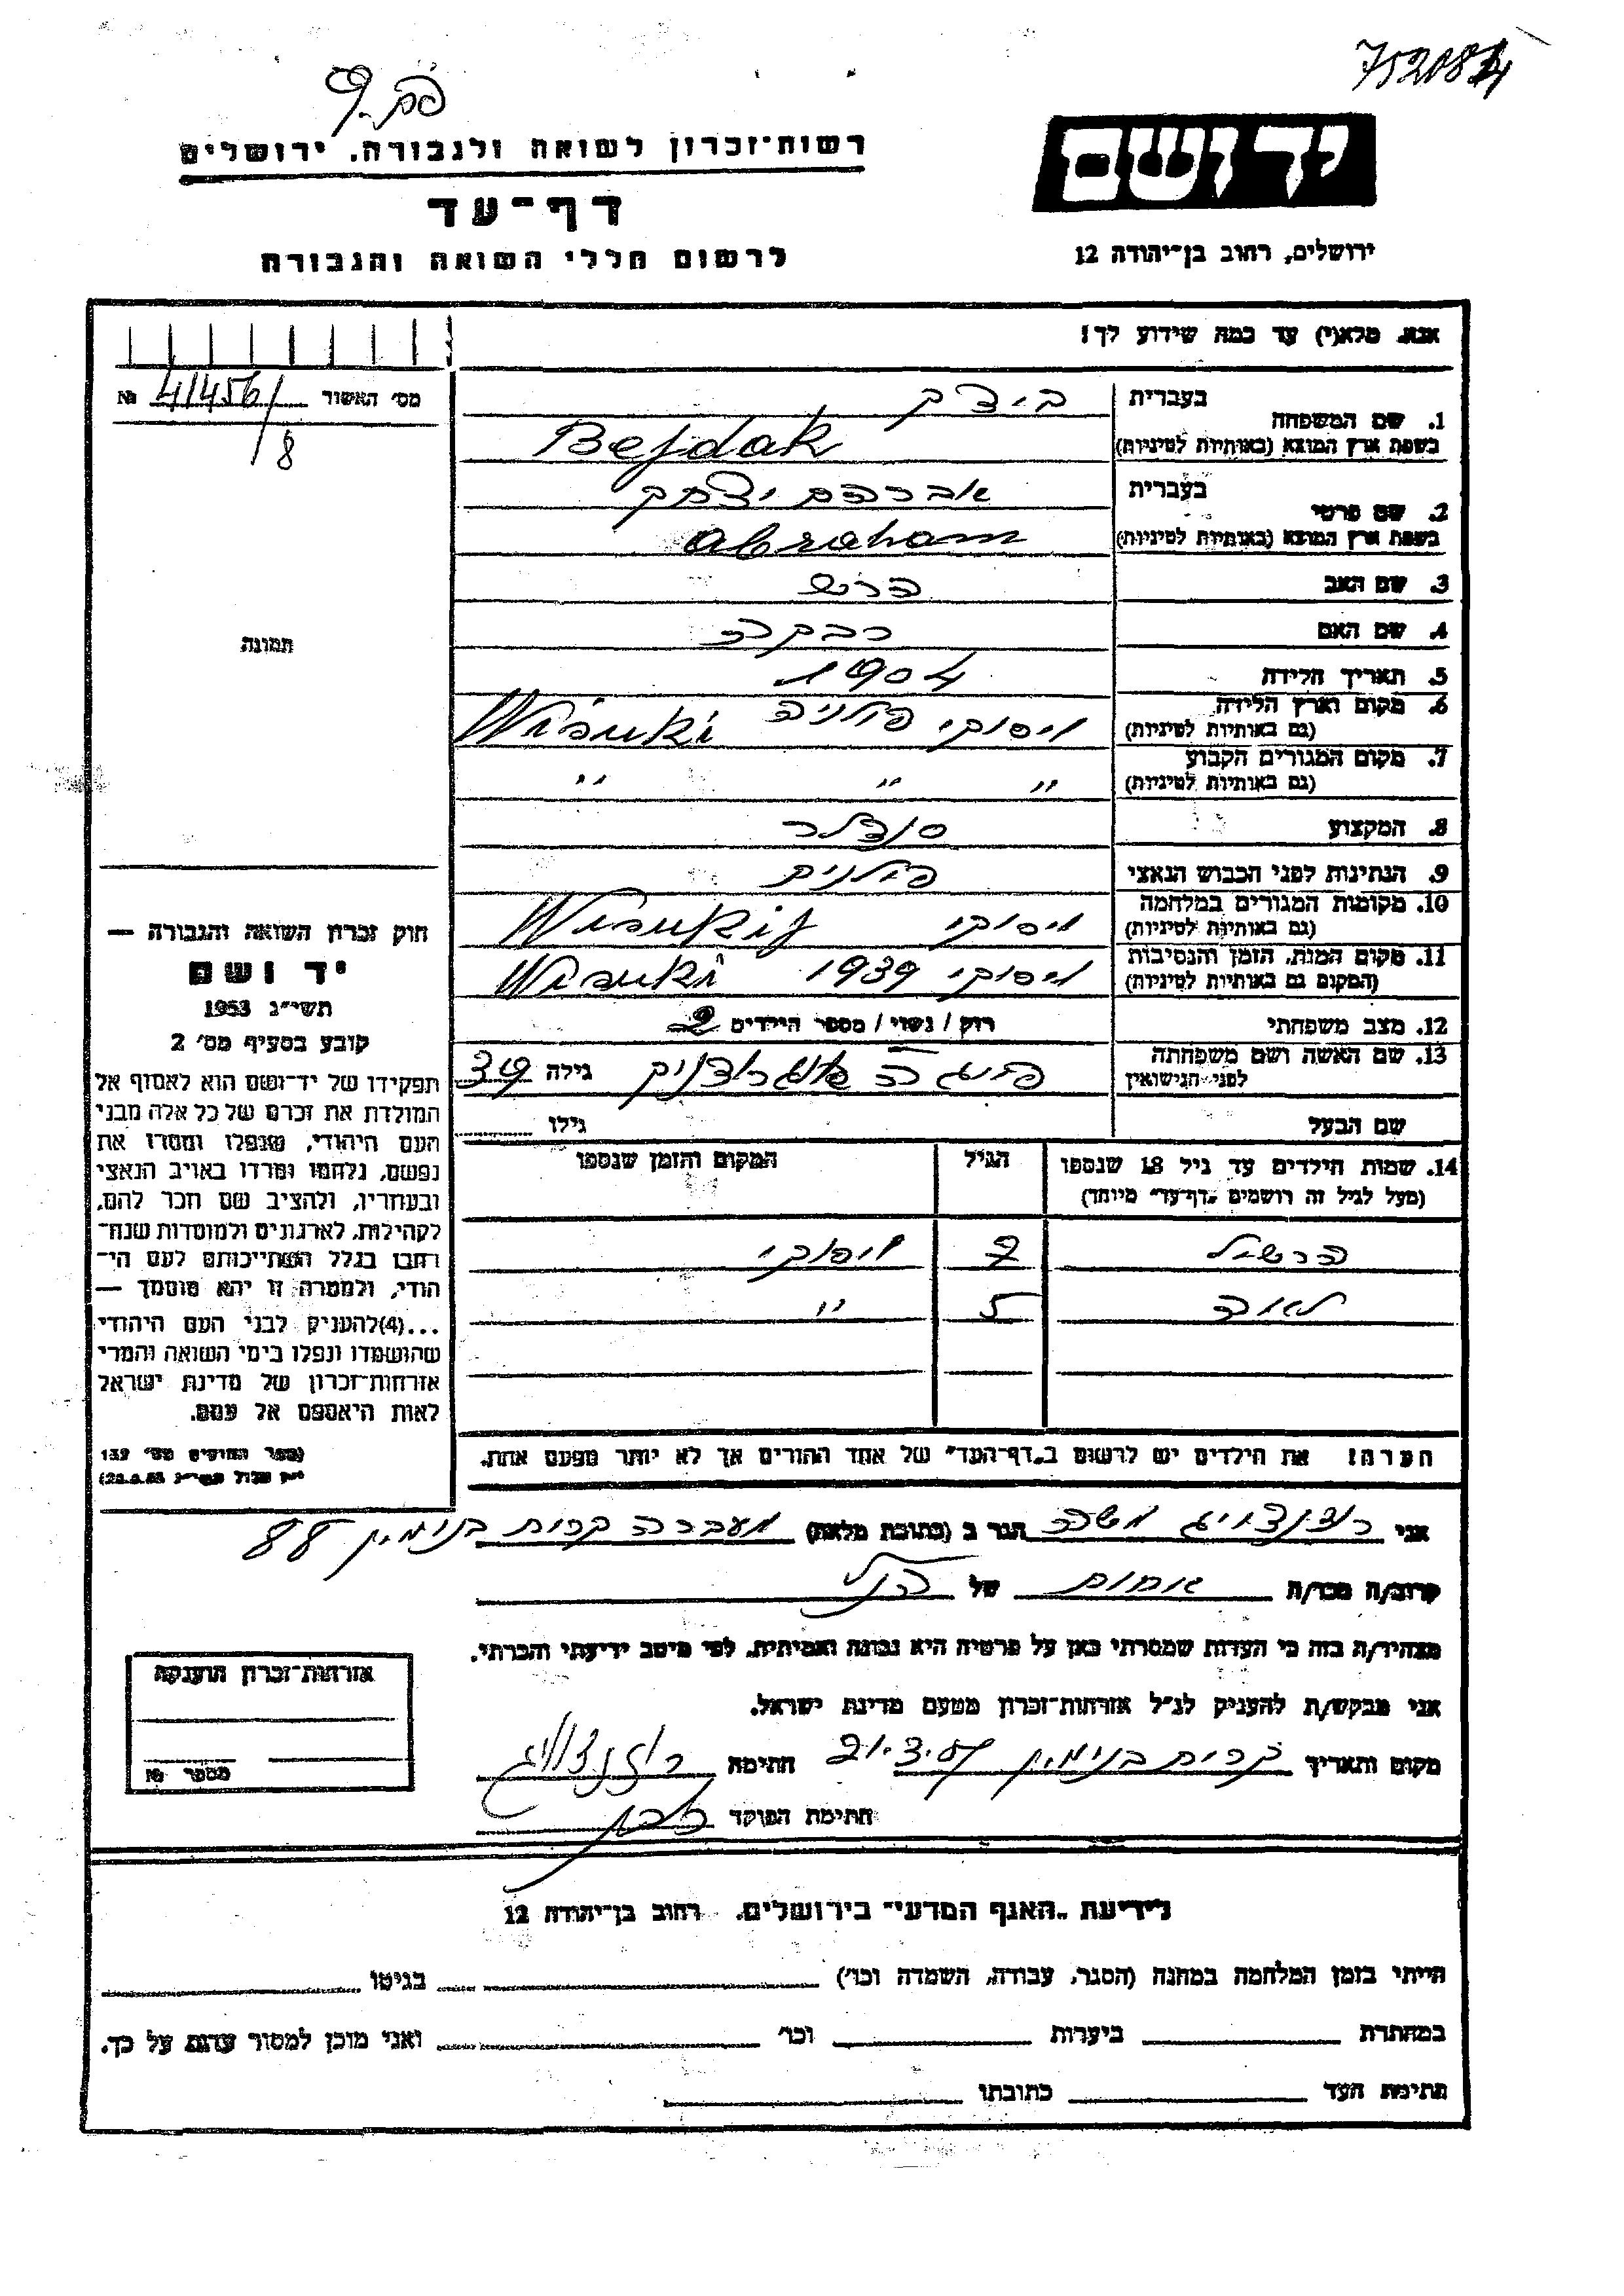 752084
יד ושם
רשות־זכרון לשואה ולגבורה, ירושלים
דף־עד
לרשום חללי השואה והגבורה
ירושלים, רחוב בן־יהודה 12
אנא, מלא(י) עד כמה שידוע לך!
מס׳ האשור 41456/8 №
1. שם המשפחה
בעברית בידק
בשפת ארץ המוצא (באותיות לטיניות) Bejdak
2. שם פרטי
בעברית אברהם יצחק
בשפת ארץ המוצא (באותיות לטיניות) Abraham
3. שם האב הרש
4. שם האם רבקה
תמונה
5. תאריך הלידה 1904
6. מקום וארץ הלידה
(גם באותיות לטיניות) ויסוקי פולניה Wisuki
7. מקום המגורים הקבוע
(גם באותיות לטיניות) " " "
8. המקצוע סנדלר
9. הנתינות לפני הכבוש הנאצי פולנית
10. מקומות המגורים במלחמה
(גם באותיות לטיניות) ויסוקי Wisukij
11. מקום המות, הזמן והנסיבות
(המקום גם באותיות לטיניות) ויסוקי 1939 Wisuki
12. מצב משפחתי רוק / נשוי / מספר הילדים 2
13. שם האשה ושם משפחתה
לפני הנישואין פיגה גילה
שם הבעל גילו
חוק זכרון השואה והגבורה —
יד ושם
תשי״ג 1953
קובע בסעיף מס׳ 2
תפקידו של יד־ושם הוא לאסוף אל
המולדת את זכרם של כל אלה מבני
העם היהודי, שנפלו ומסרו את
נפשם, נלחמו ומרדו באויב הנאצי
ובעוזריו, ולהציב שם וזכר להם,
לקהילות, לארגונים ולמוסדות שנח־
רבו בגלל השתייכותם לעם הי־
הודי, ולמטרה זו יהא מוסמך —
...(4) להעניק לבני העם היהודי
שהושמדו ונפלו בימי השואה והמרי
אזרחות־זכרון של מדינת ישראל
לאות היאספם אל עמם.
(ספר החוקים מס׳ 132
י״ז אלול תשי״ג 28.8.53)
14. שמות הילדים עד גיל 18 שנספו הגיל המקום והזמן שנספו
(מעל לגיל זה רושמים „דף־עד״ מיוחד)
הרשיל 7 ויסוקי
לאה 5 "
הערה! את הילדים יש לרשום ב„דף־העד״ של אחד ההורים אך לא יותר מפעם אחת.
אני רוזנצוויג משה הגר ב (כתובת מלאה) מעברה קרית בנימין 88
קרוב/ה מכר/ה אחות של הנ״ל
מצהיר/ה בזה כי העדות שמסרתי כאן על פרטיה היא נכונה ואמיתית, לפי מיטב ידיעתי והכרתי.
אני מבקש/ת להעניק לנ״ל אזרחות־זכרון מטעם מדינת ישראל.
מקום ותאריך קרית בנימין 21.3.57 חתימה רוזנצוויג
חתימת הפוקד
אזרחות־זכרון הוענקה
מספר №
לידיעת „האגף המדעי״ בירושלים, רחוב בן־יהודה 12
הייתי בזמן המלחמה במחנה (הסגר, עבודה, השמדה וכו׳) בגיטו
במחתרת ביערות וכו׳ ואני מוכן למסור עדות על כך.
חתימת העד כתובתו